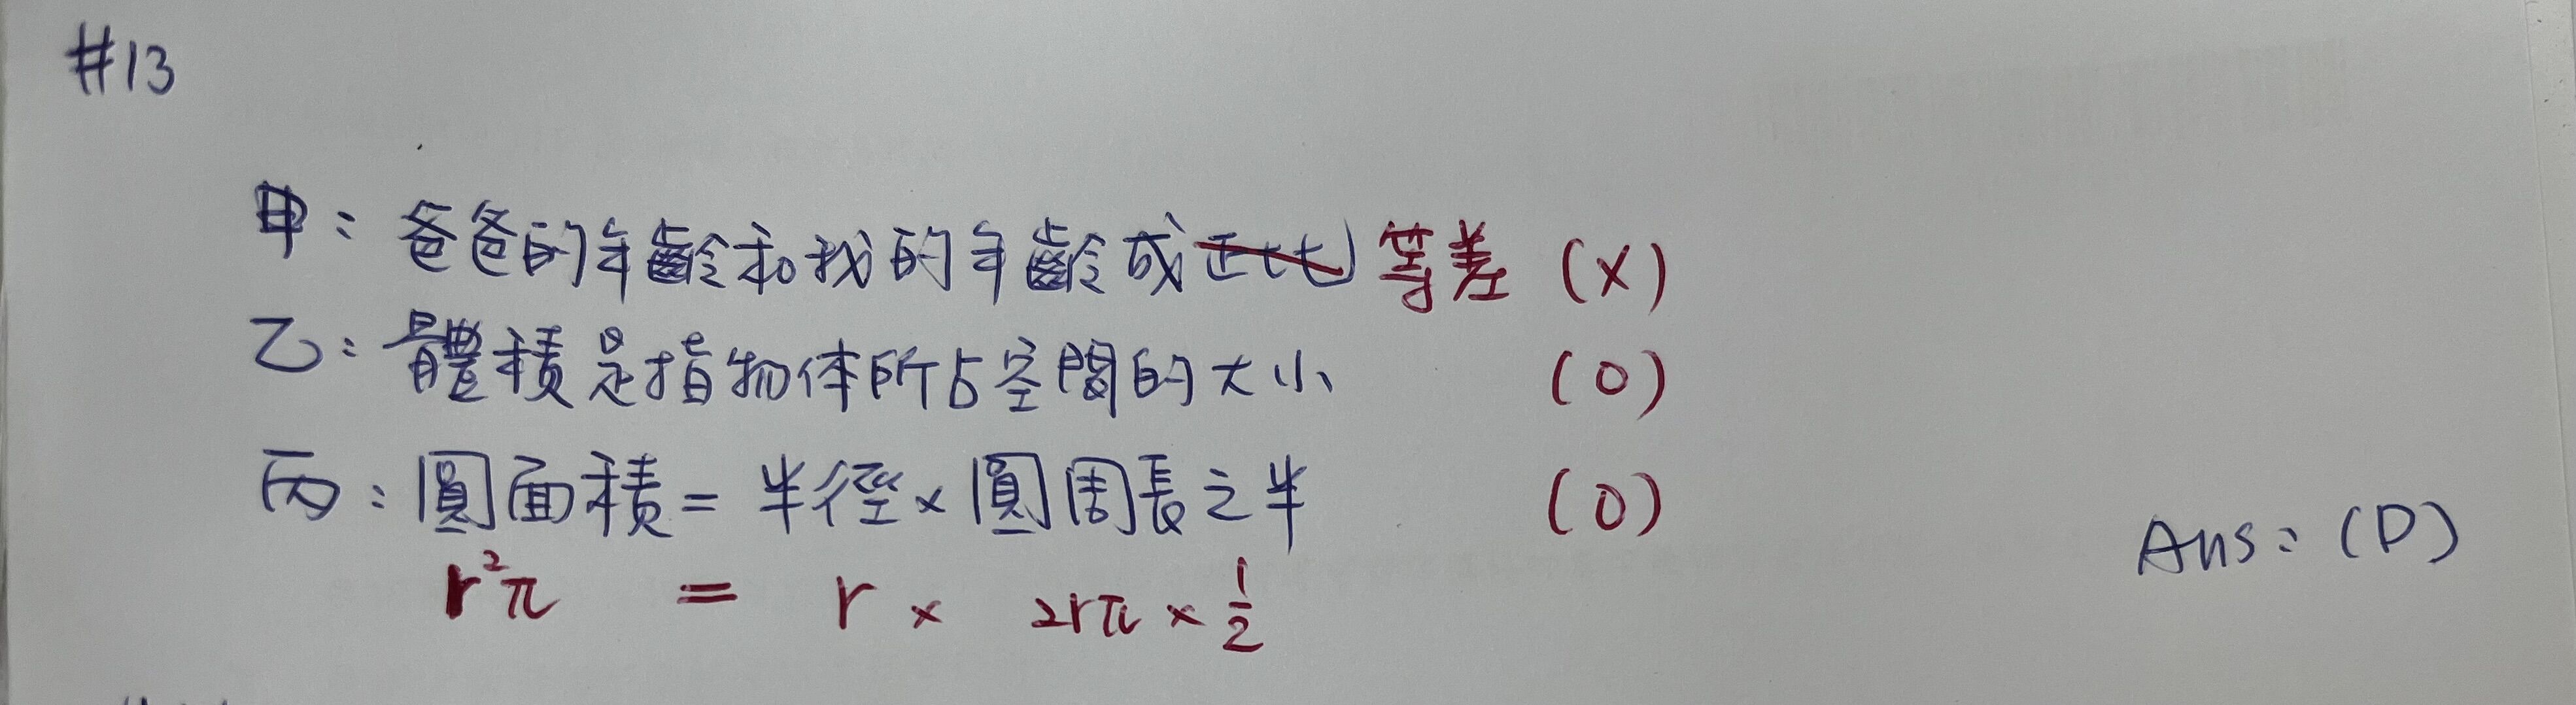 #13
甲：爸爸的年齡和我的年齡成正比 等差 (X)
乙：體積是指物体所占空間的大小 (O)
丙：圓面積 = 半徑 × 圓周長之半 (O)
r²π = r × 2rπ × 1/2
Ans：(D)